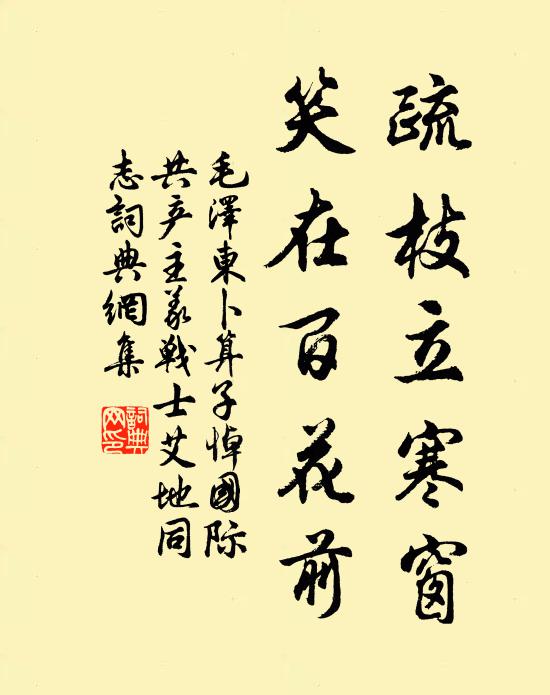 疏枝立寒窗
笑在百花前
毛澤東卜算子悼國际
共产主義戰士艾地同
志詞典網集
詞典
网印